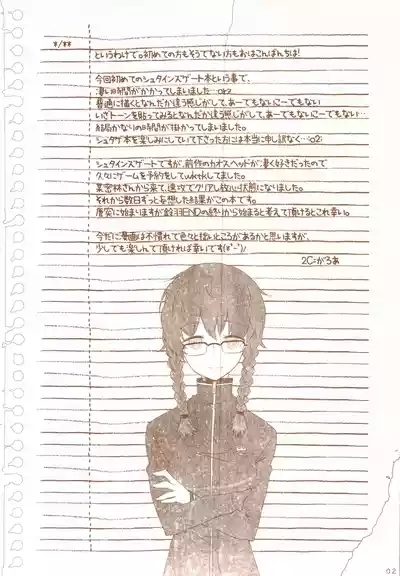 */**
というわけで。初めての方もそうでない方もおはこんばんちは!
今回初めてのシュタインズゲート本という事で、
凄い時間がかかってしまいました…orz
普通に描くとなんだか違う感じがして、あーでもないこーでもない
いざトーンを貼ってみるとなんだか違う感じがして、あーでもないこーでもない…
結局かなりの時間が掛かってしまいました。
シュタゲ本を楽しみにしていて下さった方には本当に申し訳なく…orz
シュタインズゲートですが、前作のカオスヘッドが凄く好きだったので
久々にゲームを予約をしてwktkしてました。
某密林さんから来て、速攻でクリアし放心状態になりました。
それから数日ずっと妄想した結果がこの本です。
唐突に始まりますが鈴羽ENDの終りから始まると考えて頂けるとこれ幸い。
今だに漫画は不慣れで色々と拙いところがあるかと思いますが、
少しでも楽しんで頂ければ幸いです(*'-')/
2C=がろあ
02